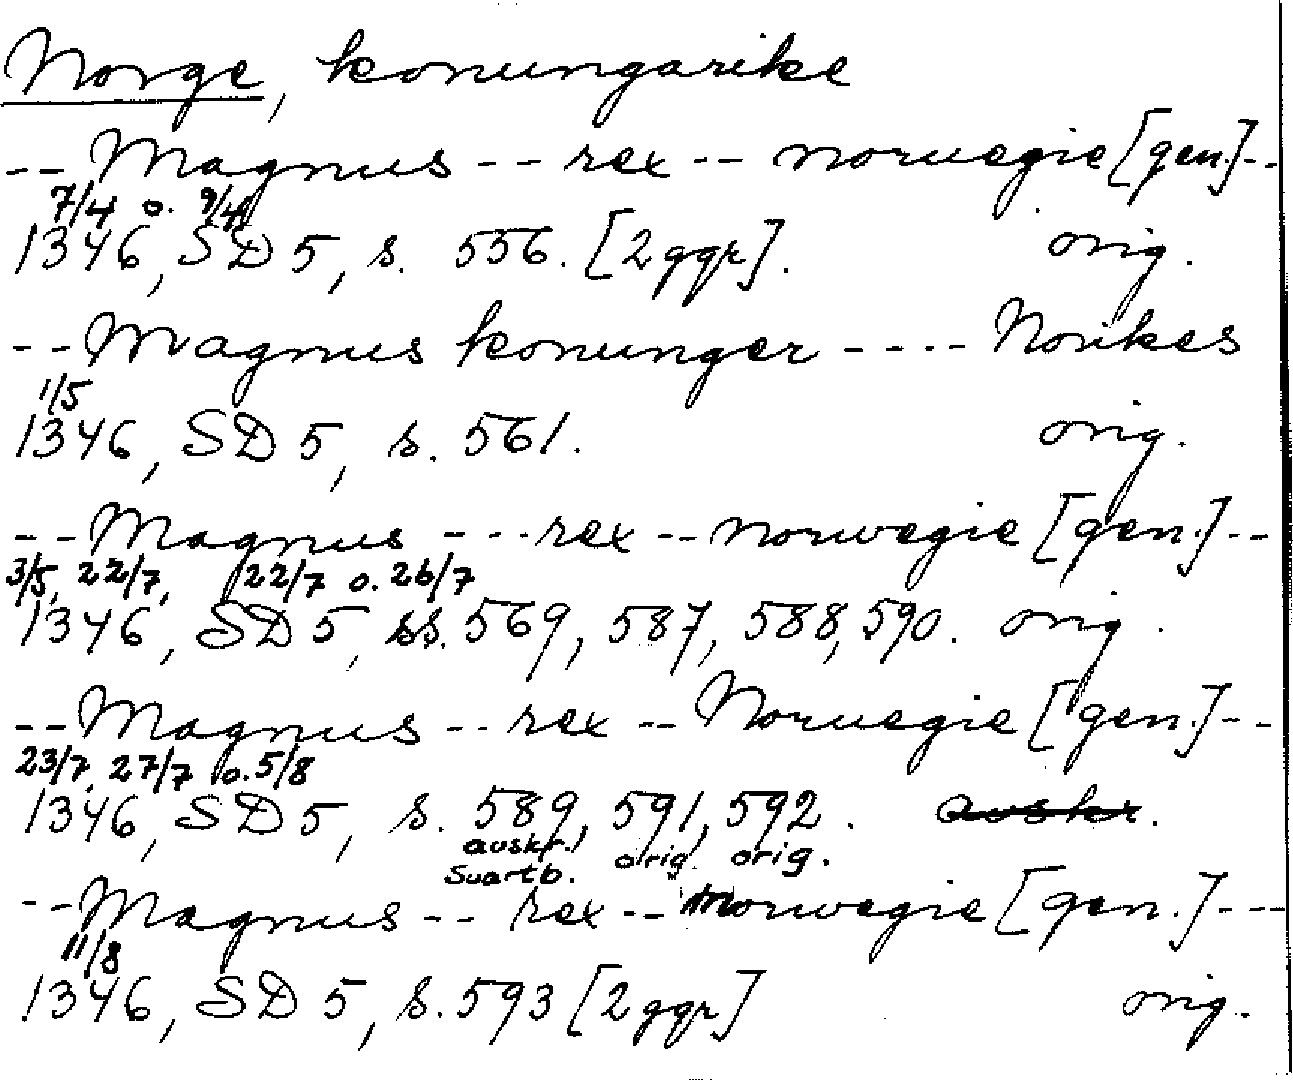 Norge, konungarike
-- Magnus -- rex -- noruegie [gen.] --
7/4 o. 9/4
1346, SD 5, s. 556. [2 ggr]. orig.
-- Magnus konunger ---- Norikes
1/5
1346, SD 5, s. 561. orig.
-- Magnus --- rex -- norwegie [gen.] --
3/5, 22/7, 22/7 o. 26/7
1346, SD 5, ss. 569, 587, 588, 590. orig.
-- Magnus -- rex -- Noruegie [gen.] --
23/7, 27/7 o. 5/8
1346, SD 5, s. 589, 591, 592. avskr.
avskr. orig. orig.
Svartb.
-- Magnus -- rex -- norwegie [gen.] ---
11/8
1346, SD 5, s. 593 [2 ggr] orig.